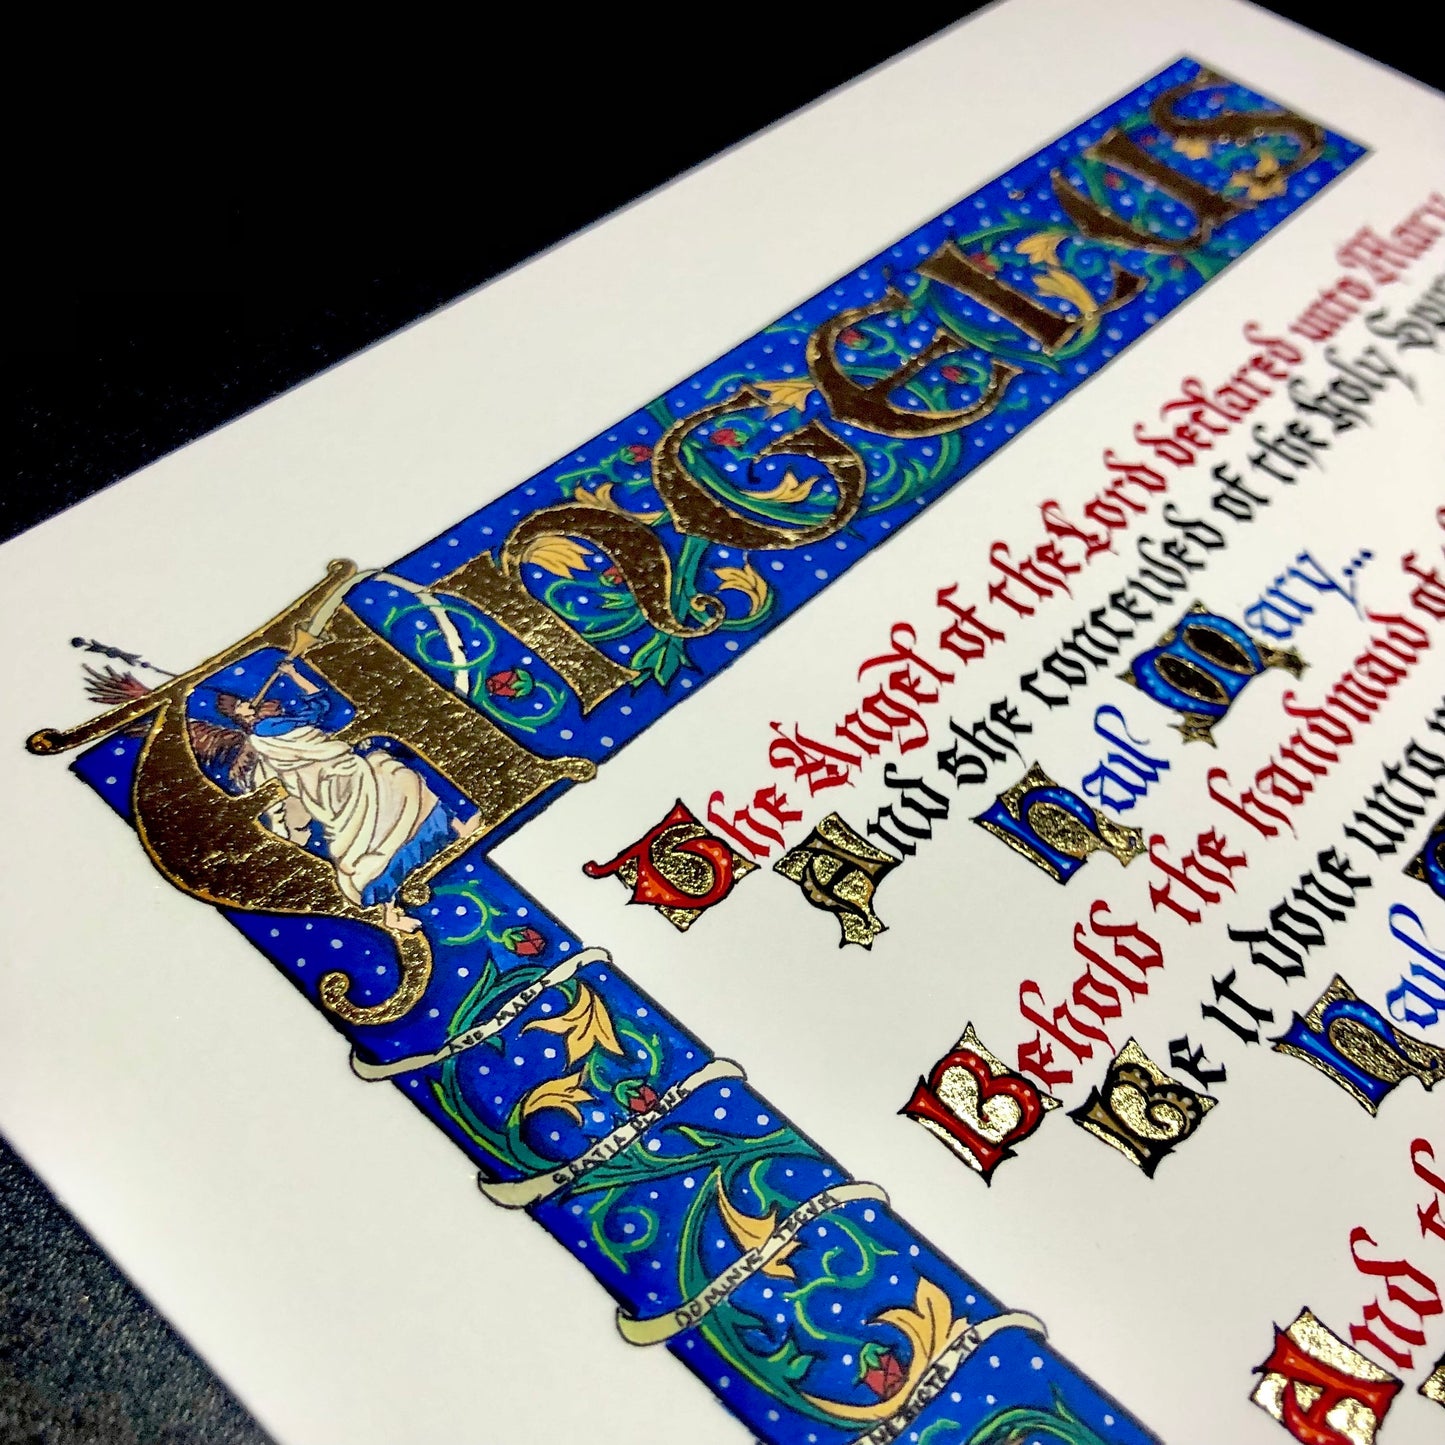 ANGELUS
The Angel of the Lord declared unto Mary
And she conceived of the Holy
Hail Mary...
Behold the handmaid of
Be it done unto
Hail
And
AVE MARIA
GRATIA PLENA
DOMINUS TECUM
BENEDICTA TU